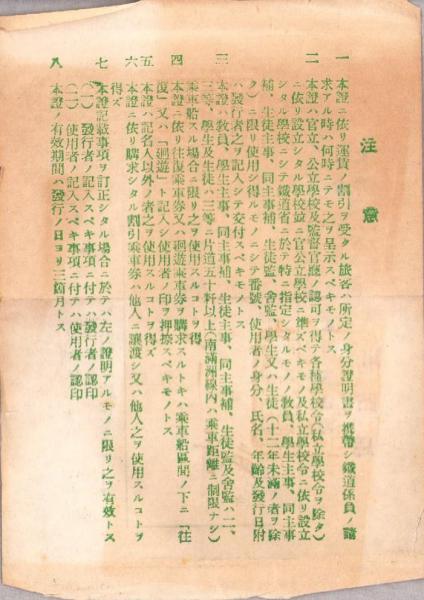 注意
一 本證ニ依リ運賃ノ割引ヲ受クル旅客ハ所定ノ身分證明書ヲ携帶シ鐵道係員ノ請
求アル時ハ何時ニテモ之ヲ呈示スベキモノトス
二 本證ハ官立、公立學校及監督官廳ノ認可ヲ得テ各種學校令(私立學校令ヲ除ク)
ニ依リ設立シタル學校竝ニ官公立學校ニ準ズベキモノ及私立學校令ニ依リ設立
シタル學校ニシテ鐵道省ニ於テ特ニ指定シタルモノノ敎員、學生主事、同主事
補、生徒主事、同主事補、生徒監、舍監、學生又ハ生徒(十二年未滿ノ者ヲ除
ク)ニ限リ使用シ得ルモノニシテ番號、使用者ノ身分、氏名、年齡及發行日附
ハ發行者之ヲ記入シテ交付スベキモノトス
三 本證ハ敎員、學生主事、同主事補、生徒主事、同主事補、生徒監及舍監ハ二、
三等、學生及生徒ハ三等ニ片道五十粁以上(南滿洲線內ハ乘車距離ニ制限ナシ)
乘車船スル場合ニ限リ之ヲ使用スルコトヲ得
四 本證ニ依リ往復乘車券又ハ廻遊乘車券ヲ購求スルトキハ乘車船區間ノ下ニ「往
復」又ハ「廻遊」ト記入シ使用者ノ印ヲ押捺スベキモノトス
五 本證ハ記名人以外ノ者之ヲ使用スルコトヲ得ズ
六 本證ニ依リ購求シタル割引乘車券ハ他人ニ讓渡シ又ハ他人之ヲ使用スルコトヲ
得ズ
七 本證記載事項ヲ訂正シタル場合ニ於テハ左ノ證明アルモノニ限リ之ヲ有效トス
(一) 發行者ノ記入スベキ事項ニ付テハ發行者ノ認印
(二) 使用者ノ記入スベキ事項ニ付テハ使用者ノ認印
八 本證ノ有效期間ハ發行ノ日ヨリ三箇月トス